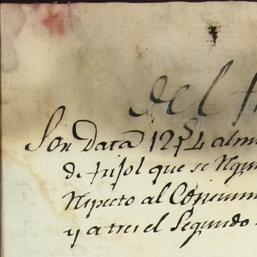 del
Son data 1254 alm
de frisol que se
Respecto al Consum
y a tres el Segundo